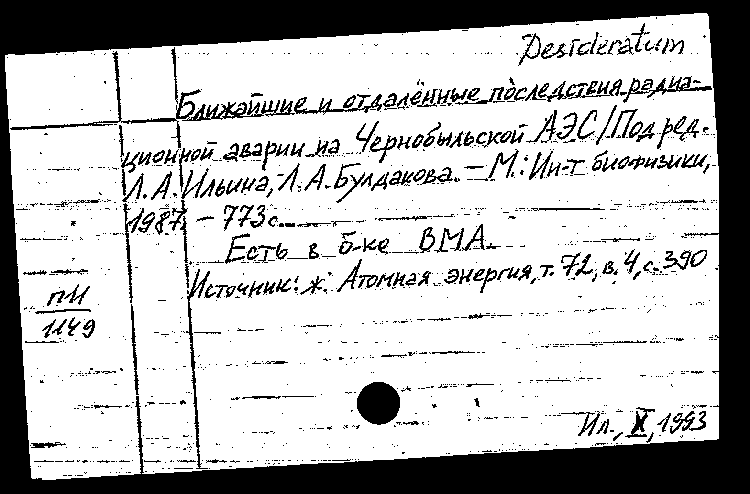 Desideratum
Ближайшие и отдалённые последствия радиа-
ционной аварии на Чернобыльской АЭС/Под ред.
Л.А. Ильина, Л.А. Булдакова. – М.: Ин-т биофизики,
1987. – 773с.
Есть в б-ке ВМА.
Источник: ж. Атомная энергия, т. 72, в. 4, с. 390
пИ
1149
Ил., X, 1993